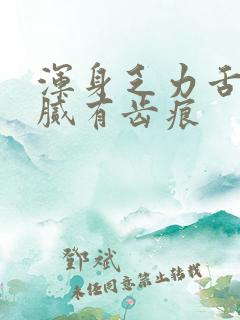 渾身乏力舌
膩有齿痕
鄧斌
未经同意禁止转载